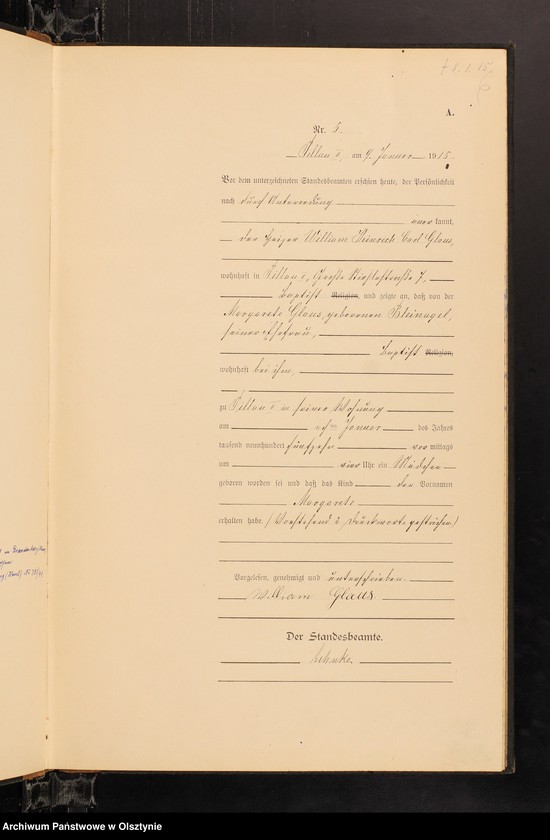 8. 1. 15.
A.
Nr. 5.
Pillau I, am 9. Januar 1915.
Vor dem unterzeichneten Standesbeamten erschien heute, der Persönlichkeit
nach durch Unterredung
kannt,
der Heizer William Heinrich Carl Glaus,
wohnhaft in Pillau I, Große 7,
baptist. Religion, und zeigte an, daß von der
Margarete Glaus, geborenen Bleinagel,
seiner Ehefrau,
baptist Religion,
wohnhaft bei ihm,
zu Pillau I in seiner Wohnung
am Januar des Jahres
tausend neunhundert fünfzehn vor mittags
um vier Uhr ein Mädchen
geboren worden sei und daß das Kind den Vornamen
Margarete
erhalten habe. (Vorstehend 2 Druckworte gestrichen.)
Vorgelesen, genehmigt und unterschrieben.
William Glaus.
Der Standesbeamte.
Archiwum Państwowe w Olsztynie